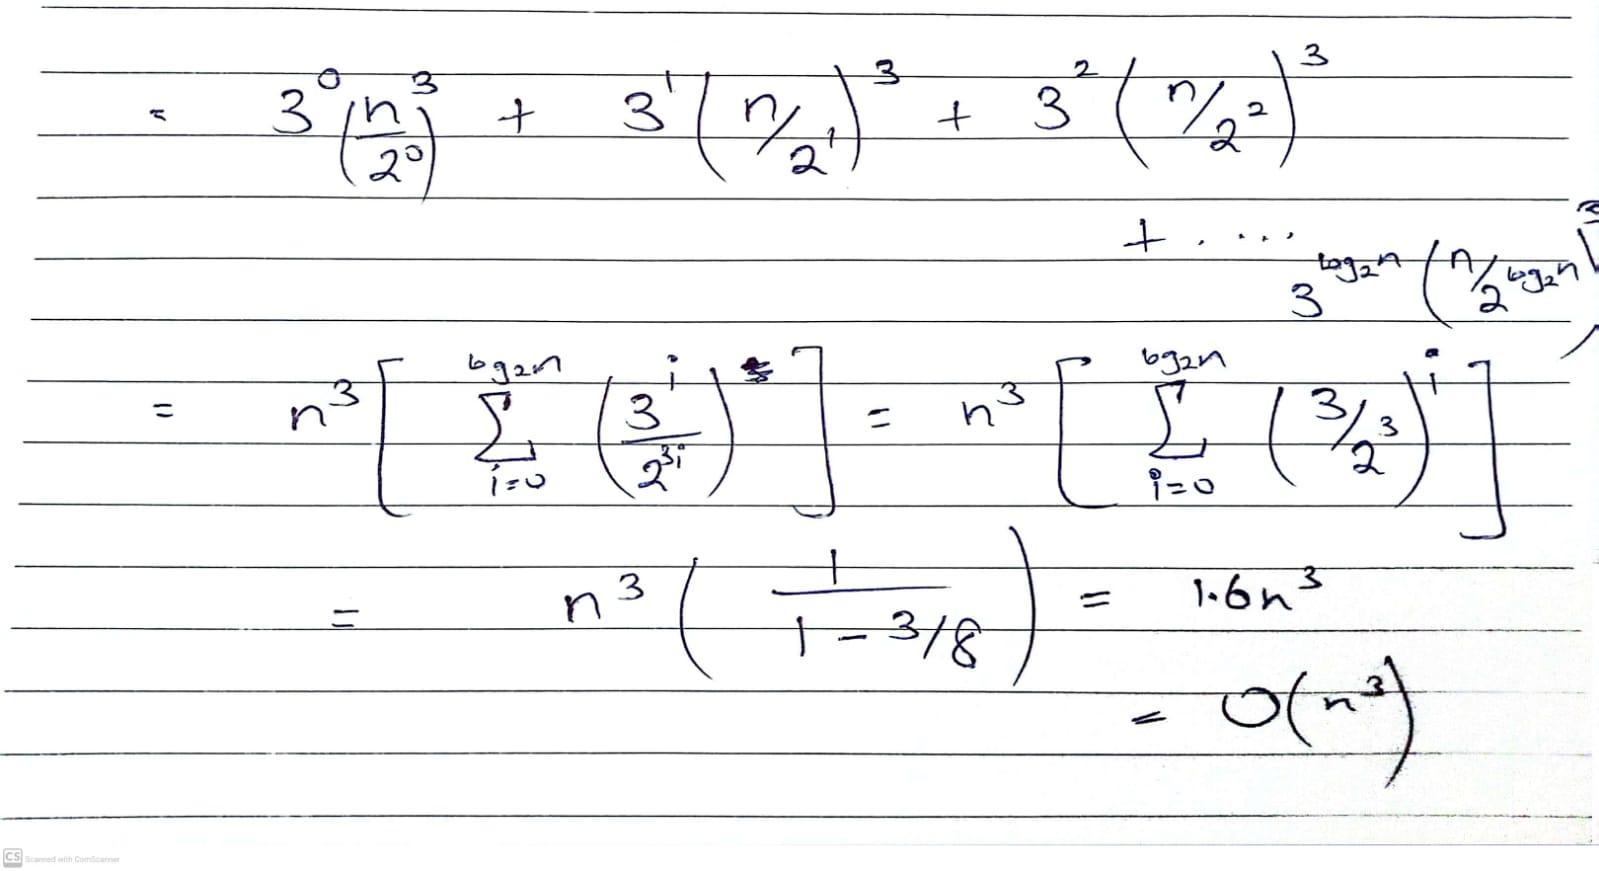 = 3^0 (n/2^0)^3 + 3^1 (n/2^1)^3 + 3^2 (n/2^2)^3
+ .....
3^{log_2 n} (n/2^{log_2 n})^3
= n^3 [ \sum_{i=0}^{log_2 n} (3^i / 2^{3i}) ] = n^3 [ \sum_{i=0}^{log_2 n} (3/2^3)^i ]
= n^3 ( 1 / (1 - 3/8) ) = 1.6n^3
= O(n^3)
CS Scanned with CamScanner